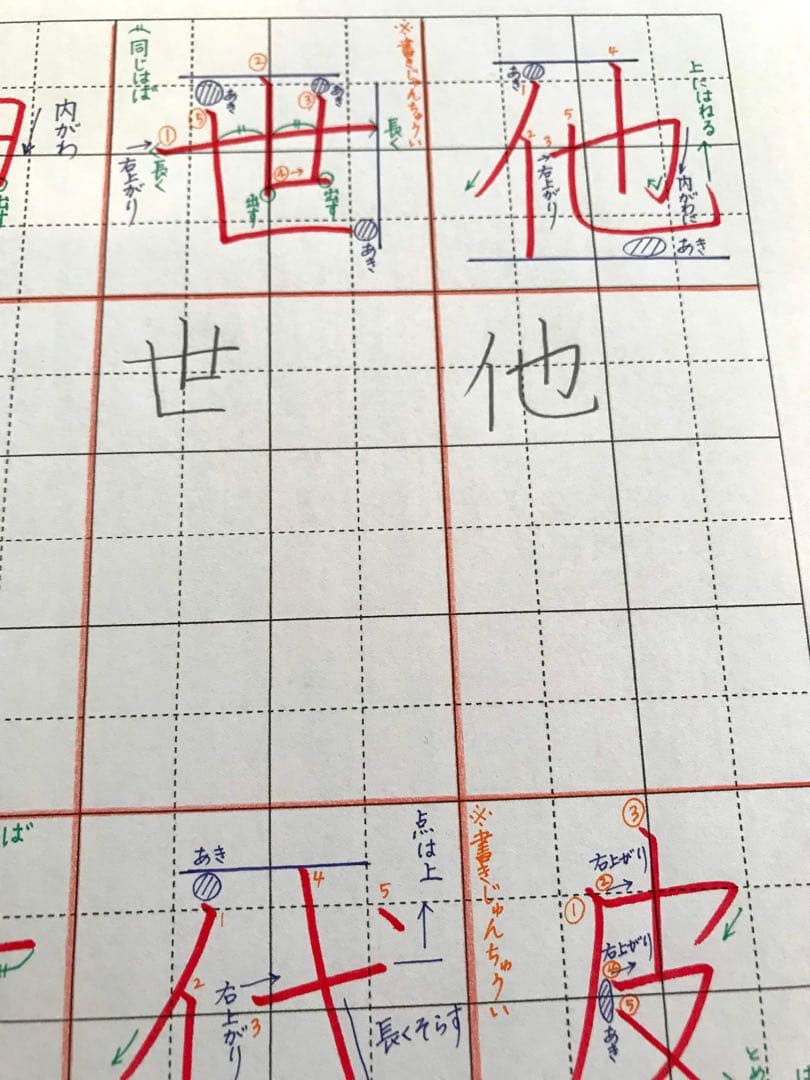 内がわ
出す
同じはば
②
あき
③
あき
⑤
①
長く
右上がり
④→
出す
出す
長く
あき
世
※書きじゅんちゅうい
あき
1
2
3
4
5
右上がり
上にはねる
内がわに
あき
他
世
他
ば
あき
1
2
3
4
5
右上がり
点は上
長くそらす
代
※書きじゅんちゅうい
③
②
右上がり
①
④
右上がり
⑤
あき
皮
とめ
は